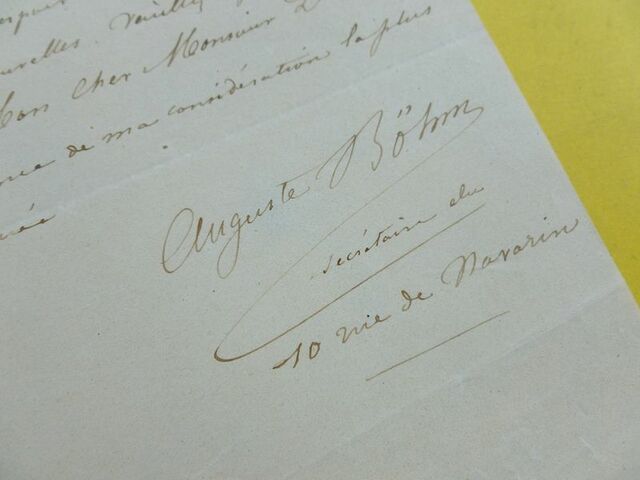 mon cher Monsieur
de ma considération la plus
Auguste Böhm
secrétaire du
10 rue de Navarin